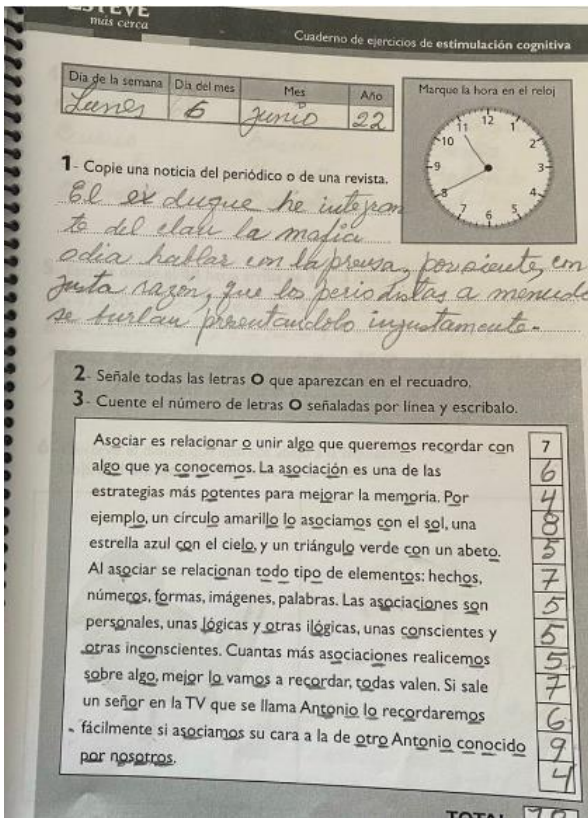 ESTEVE
más cerca
Cuaderno de ejercicios de estimulación cognitiva
Día de la semana Día del mes Mes Año
Lunes 6 Junio 22
Marque la hora en el reloj
12 1 2 3 4 5 6 7 8 9 10 11
1- Copie una noticia del periódico o de una revista.
El ex duque he integran
te del clan la mafia
odia hablar con la prensa, por siente, con
justa razón, que los periodistas a menudo
se burlan presentandolo injustamente.
2- Señale todas las letras O que aparezcan en el recuadro.
3- Cuente el número de letras O señaladas por línea y escríbalo.
Asociar es relacionar o unir algo que queremos recordar con 7
algo que ya conocemos. La asociación es una de las 6
estrategias más potentes para mejorar la memoria. Por 4
ejemplo, un círculo amarillo lo asociamos con el sol, una 8
estrella azul con el cielo, y un triángulo verde con un abeto. 5
Al asociar se relacionan todo tipo de elementos: hechos, 7
números, formas, imágenes, palabras. Las asociaciones son 5
personales, unas lógicas y otras ilógicas, unas conscientes y 5
otras inconscientes. Cuantas más asociaciones realicemos 5
sobre algo, mejor lo vamos a recordar, todas valen. Si sale 7
un señor en la TV que se llama Antonio lo recordaremos 6
fácilmente si asociamos su cara a la de otro Antonio conocido 9
por nosotros. 4
TOTAL